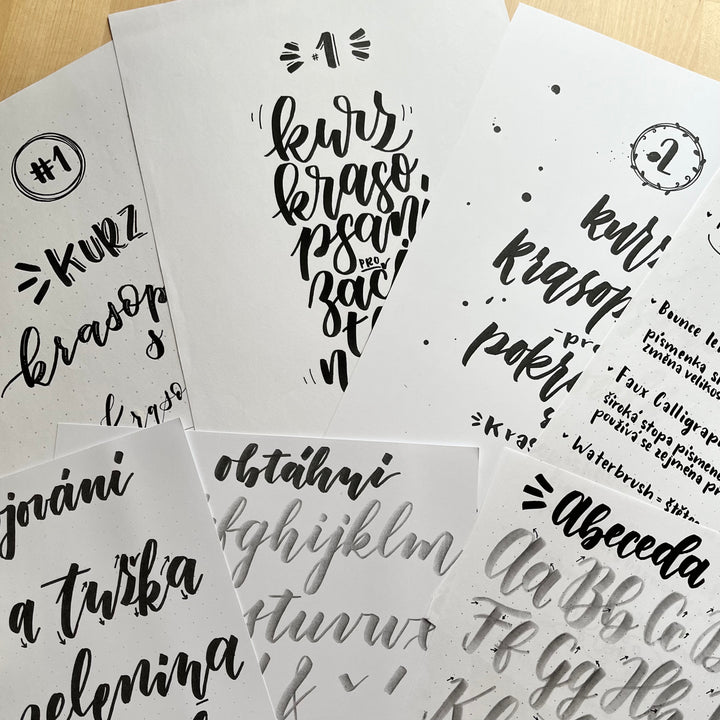 #1
KURZ
#1
kurz
kraso
psaní
PRO
2
Bounce le
písmenka s
změna velikos
Faux Calligrap
široká stopa písmene
používá se zejména pr
Waterbrush =
kurz
krasop
pro
pokr
*Kras
krasop
s
kraso
jování
a tužka
zelenina
obtáhni
fghijklm
stuvwx
Abeceda
Aa Bb Cc
Ff Gg Hh